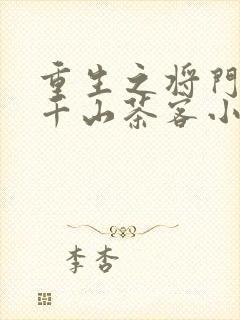 重生之将门
千山茶客小
李杏